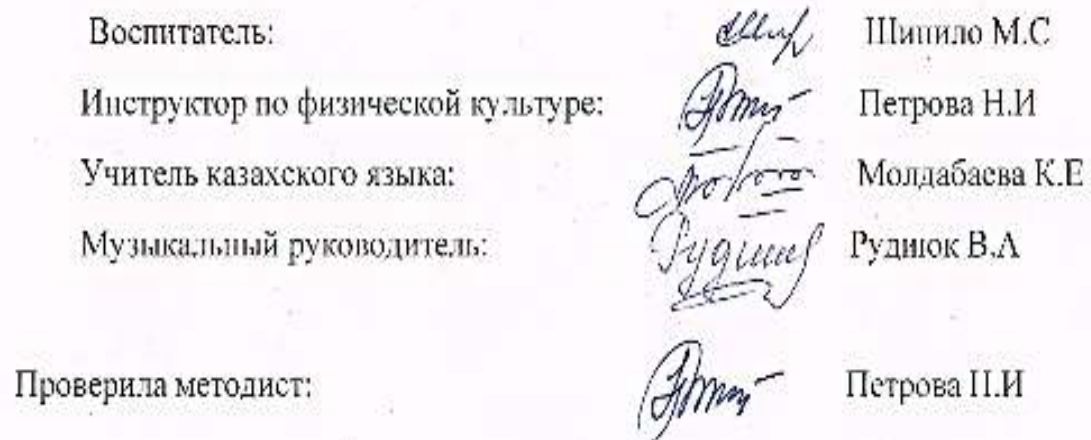 Воспитатель: Шипило М.С
Инструктор по физической культуре: Петрова Н.И
Учитель казахского языка: Молдабаева К.Е
Музыкальный руководитель: Рудиюк В.А
Проверила методист: Петрова Н.И